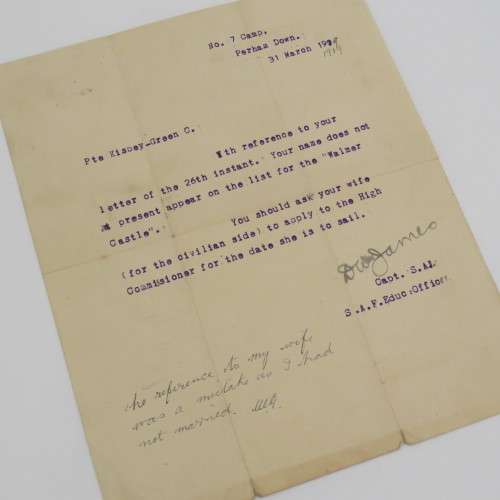 No. 7 Camp,
Perham Down.
31 March 1919
1919
Pte Kisbey-Green C.
Wth reference to your
letter of the 26th instant. Your name does not
at present appear on the list for the "Walmer
Castle".
You should ask your wife
(for the civilian side) to apply to the High
Commissioner for the date she is to sail.
James
Capt. S.A.
S.A.F.Educ:Officer
The reference to my wife
was a mistake as I had
not married.